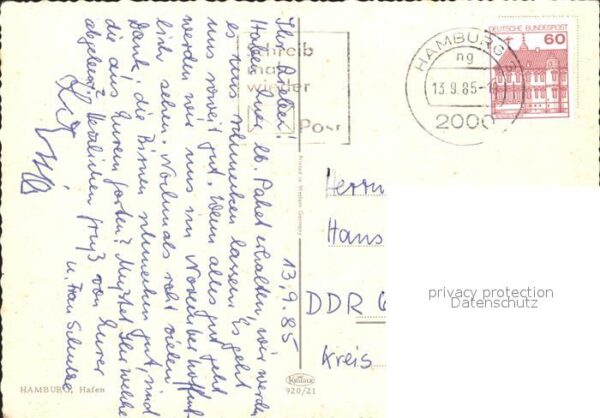 13.9.85
Ihr Lieben!
Haben Euer lb. Paket erhalten, wir werden
es uns schmecken lassen. Es geht
uns soweit gut. Wenn alles gut geht
werden wir uns im November hoffent-
lich sehen. Nochmals recht vielen
Dank, die Birnen schmecken gut, sind
die aus Eurem Garten? Mußtet Ihr welche
abgeben? Herzlichen Gruß von Eurer
u. Frau Schulze
Schreib
mal
wieder
Post
HAMBURG
ng
13.9.85-
2000
DEUTSCHE BUNDESPOST
60
Printed in Western Germany
Herrn
Hans
DDR
Kreis
privacy protection
Datenschutz
HAMBURG, Hafen
Krüger
920/21